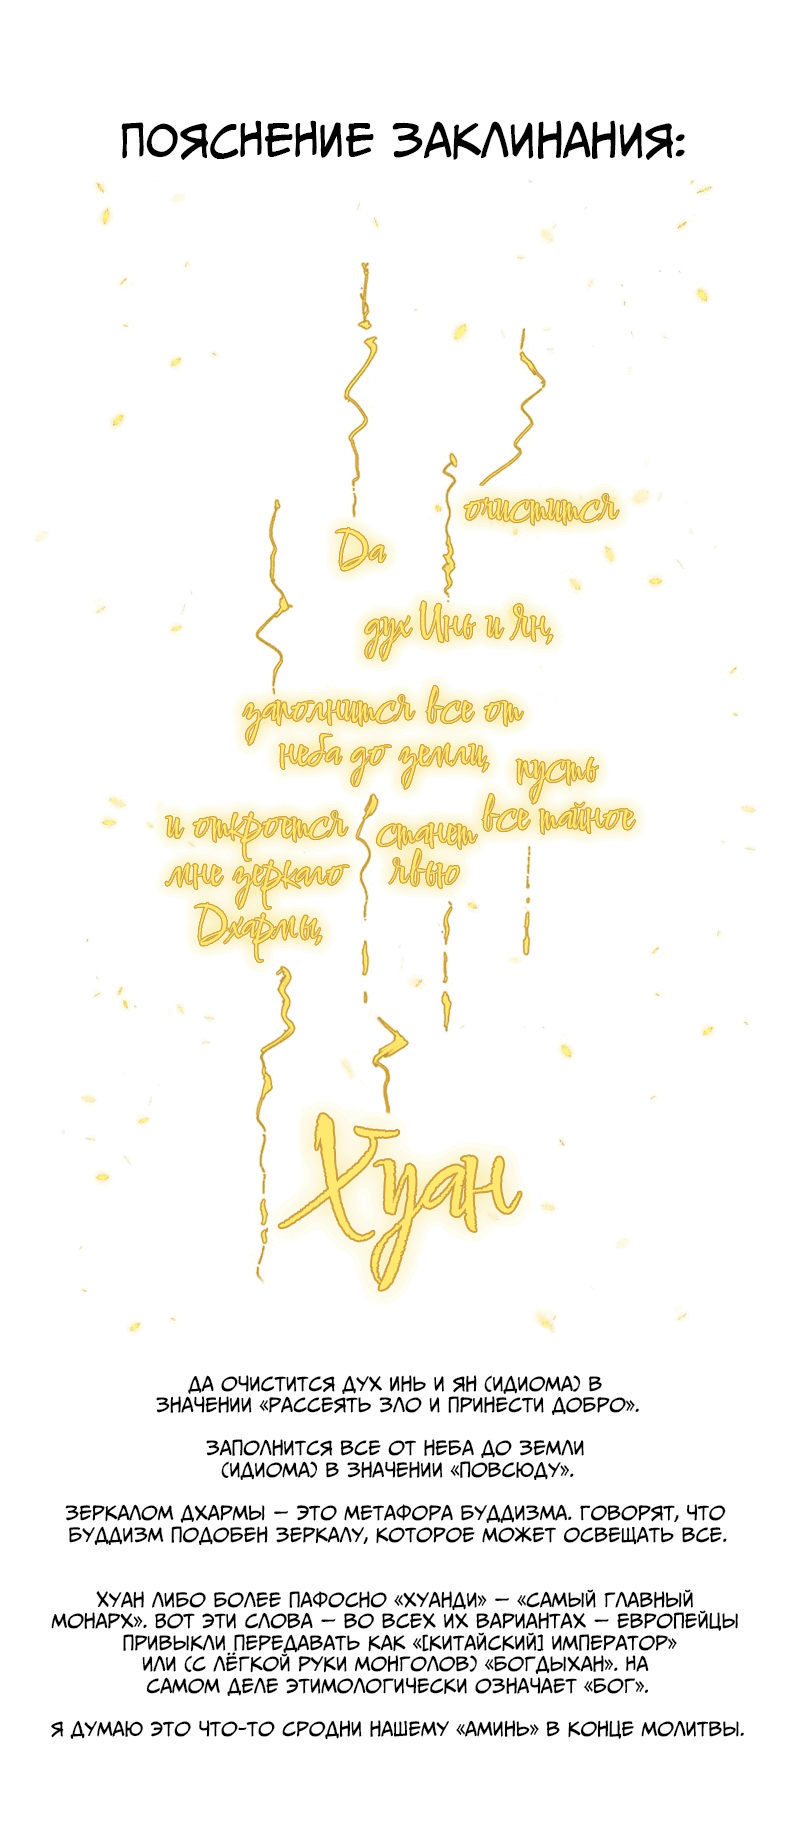 ПОЯСНЕНИЕ ЗАКЛИНАНИЯ:
Да
очистится
дух Инь и Ян,
заполнится все от
неба до земли,
и откроется
мне зеркало
Дхармы,
пусть
все тайное
станет
явью
Хуан
ДА ОЧИСТИТСЯ ДУХ ИНЬ И ЯН (ИДИОМА) В
ЗНАЧЕНИИ «РАССЕЯТЬ ЗЛО И ПРИНЕСТИ ДОБРО».
ЗАПОЛНИТСЯ ВСЕ ОТ НЕБА ДО ЗЕМЛИ
(ИДИОМА) В ЗНАЧЕНИИ «ПОВСЮДУ».
ЗЕРКАЛОМ ДХАРМЫ – ЭТО МЕТАФОРА БУДДИЗМА. ГОВОРЯТ, ЧТО
БУДДИЗМ ПОДОБЕН ЗЕРКАЛУ, КОТОРОЕ МОЖЕТ ОСВЕЩАТЬ ВСЕ.
ХУАН ЛИБО БОЛЕЕ ПАФОСНО «ХУАНДИ» – «САМЫЙ ГЛАВНЫЙ
МОНАРХ». ВОТ ЭТИ СЛОВА – ВО ВСЕХ ИХ ВАРИАНТАХ – ЕВРОПЕЙЦЫ
ПРИВЫКЛИ ПЕРЕДАВАТЬ КАК «[КИТАЙСКИЙ] ИМПЕРАТОР»
ИЛИ (С ЛЁГКОЙ РУКИ МОНГОЛОВ) «БОГДЫХАН». НА
САМОМ ДЕЛЕ ЭТИМОЛОГИЧЕСКИ ОЗНАЧАЕТ «БОГ».
Я ДУМАЮ ЭТО ЧТО-ТО СРОДНИ НАШЕМУ «АМИНЬ» В КОНЦЕ МОЛИТВЫ.